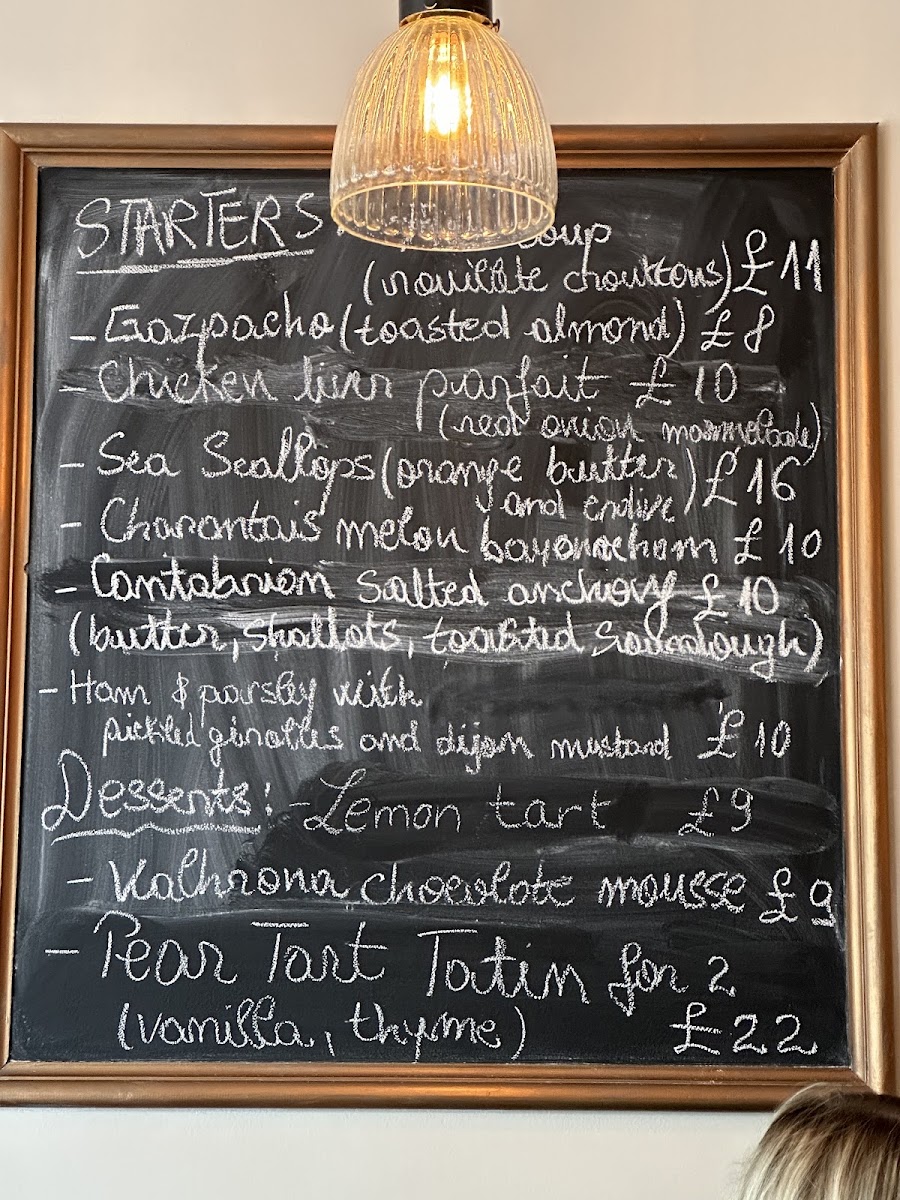 STARTERS: soup
(rouillate chouttons) £11
- Gazpacho (toasted almond) £8
- Chicken liver parfait £10
(red onion marmelade)
- Sea Scallops (orange butter
and endive) £16
- Charantais melon bayonne ham £10
- Cantabrian salted anchovy £10
(butter, shallots, toasted sourdough)
- Ham & parsley with
pickled girolles and dijon mustard £10
Desserts: - Lemon tart £9
- Valhrona chocolate mousse £9
- Pear Tart Tatin for 2
(vanilla, thyme) £22